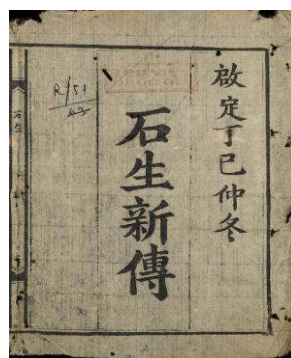 啟定丁巳仲冬
石生新傳
R/51
石生